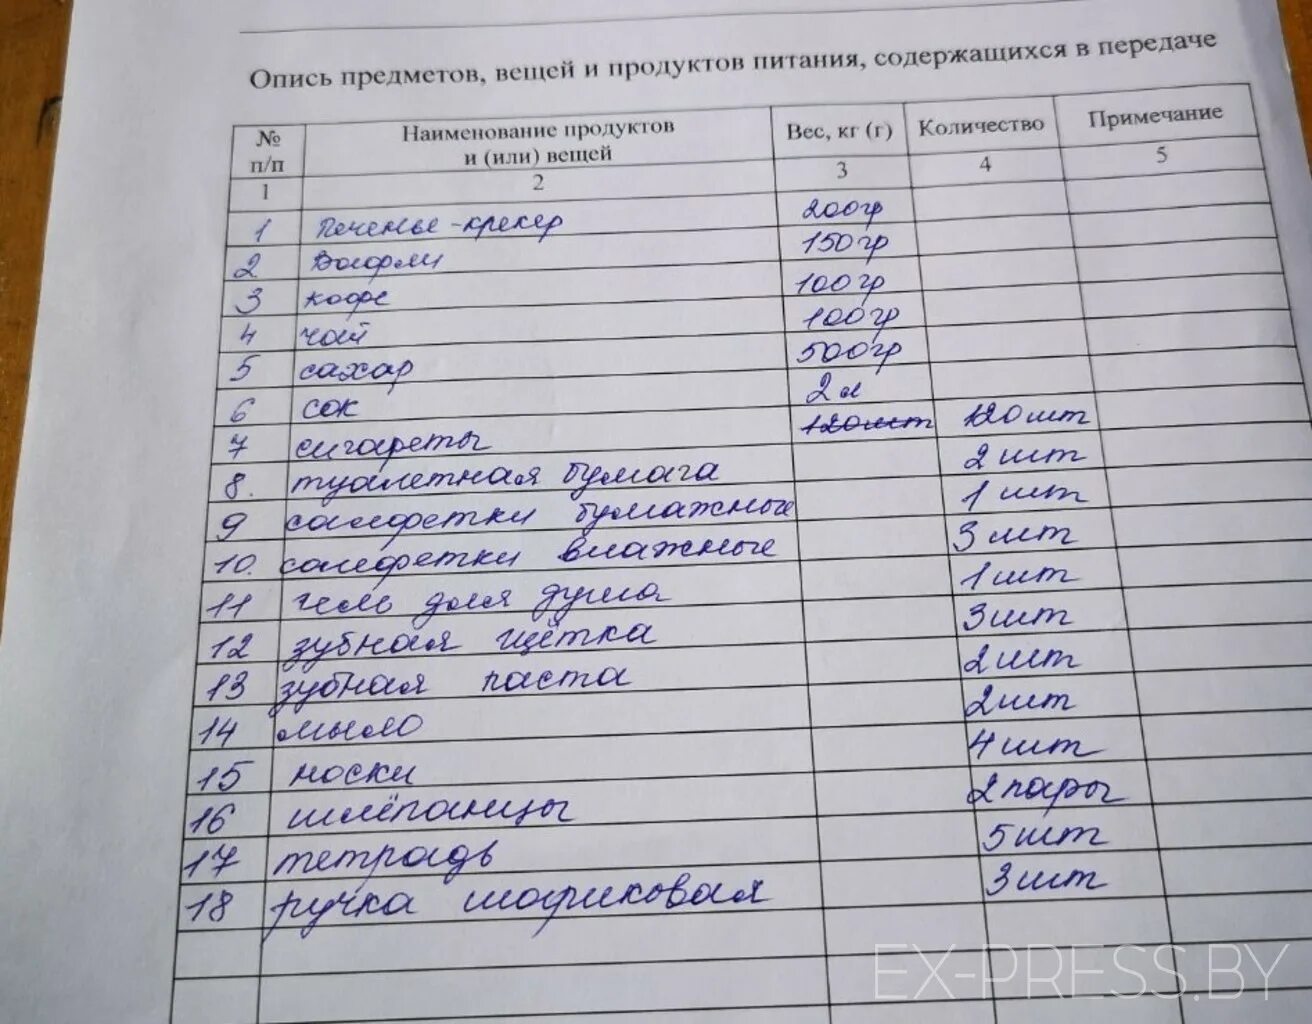 Опись предметов, вещей и продуктов питания, содержащихся в передаче
№ п/п Наименование продуктов и (или) вещей Вес, кг (г) Количество Примечание
1 2 3 4 5
1 Печенье-крекер 200гр
2 Вафли 150гр
3 кофе 100гр
4 чай 100гр
5 сахар 500гр
6 сок 2л
7 сигареты 120шт 120шт
8. туалетная бумага 2шт
9 салфетки бумажные 1шт
10. салфетки влажные 3шт
11 гель для душа 1шт
12 зубная щётка 3шт
13 зубная паста 2шт
14 мыло 2шт
15 носки 4шт
16 шлёпанцы 2пары
17 тетрадь 5шт
18 ручка шариковая 3шт
EX-PRESS.BY